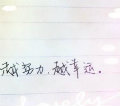 越努力,越幸运。